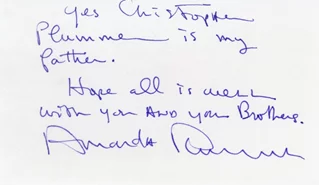 yes Christopher
Plummer is my
father.
Hope all is well
with you AND your Brothers.
Amanda Plummer